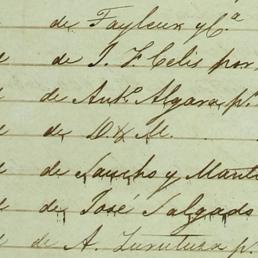 de Fayleux y C.ª
de J. F. Celis por
de Ant.º Algara p.
de D & M.
de Sancho y Mant
de José Salgado
de A. Zurutuza p.